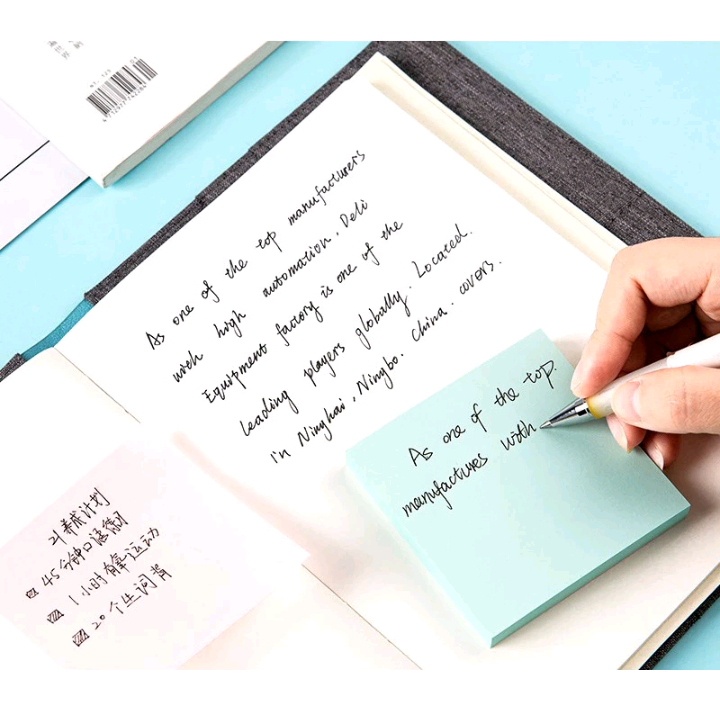 As one of the top manufacturers
with high automation. Deli
Equipment factory is one of the
leading players globally. Located.
in Ninghai, Ningbo. China. covers.
As one of the top.
manufactures with
21养成计划
45分钟口语练习
1小时有氧运动
20个生词背